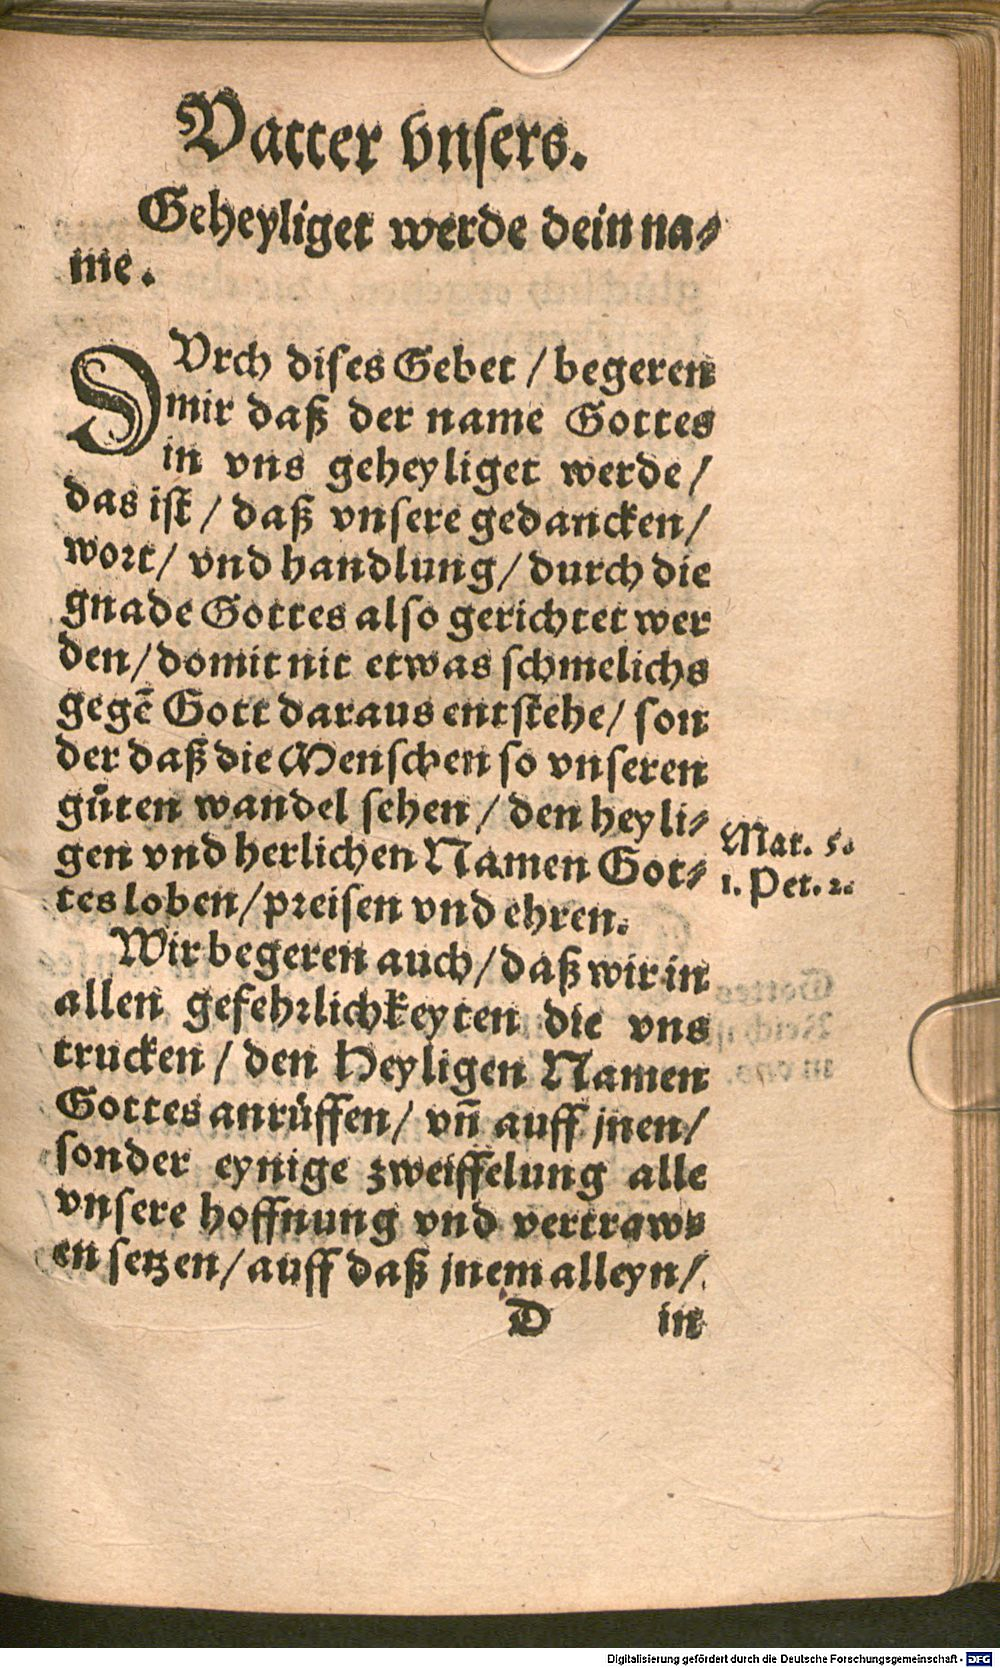 Vatter vnsers.
Geheyliget werde dein na⸗
me.
DVrch dises Gebet / begeren
mir daß der name Gottes
in vns geheyliget werde /
das ist / daß vnsere gedancken /
wort / vnd handlung / durch die
gnade Gottes also gerichtet wer
den / domit nit etwas schmelichs
gegē Gott daraus entstehe / son
der daß die Menschen so vnseren
gůten wandel sehen / den heyli⸗
gen vnd herlichen Namen Got⸗
tes loben / preisen vnd ehren.
Mat. 5.
1. Pet. 2.
Wir begeren auch / daß wir in
allen gefehrlichkeyten die vns
trucken / den Heyligen Namen
Gottes anrůffen / vñ auff jnen /
sonder eynige zweiffelung alle
vnsere hoffnung vnd vertraw⸗
en setzen / auff daß jnem alleyn /
D in
Digitalisierung gefördert durch die Deutsche Forschungsgemeinschaft - DFG